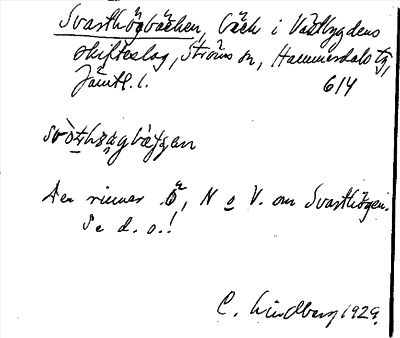 Svarthögbäcken, bäck i Västbygdens
skifteslag, Ströms sn, Hammerdals tg,
Jämtl. l. 614
Den rinner Ö, N o V. om Svarthögen.
Se d. o.!
C. Lindberg 1929.